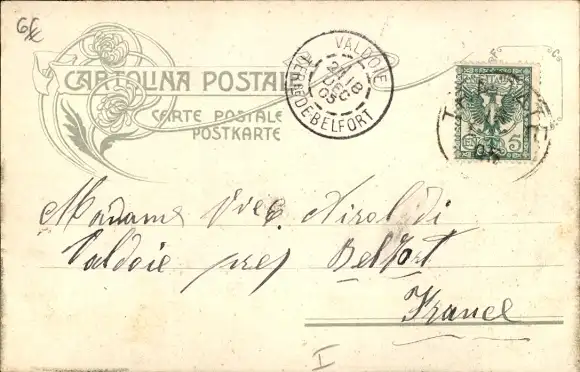 CARTOLINA POSTALE
CARTE POSTALE
POSTKARTE
VALDOIE
TERRE DE BELFORT
DEC
05
CEN 5
Madame Vve Nirol di
Valdoie près Belfort
France
I